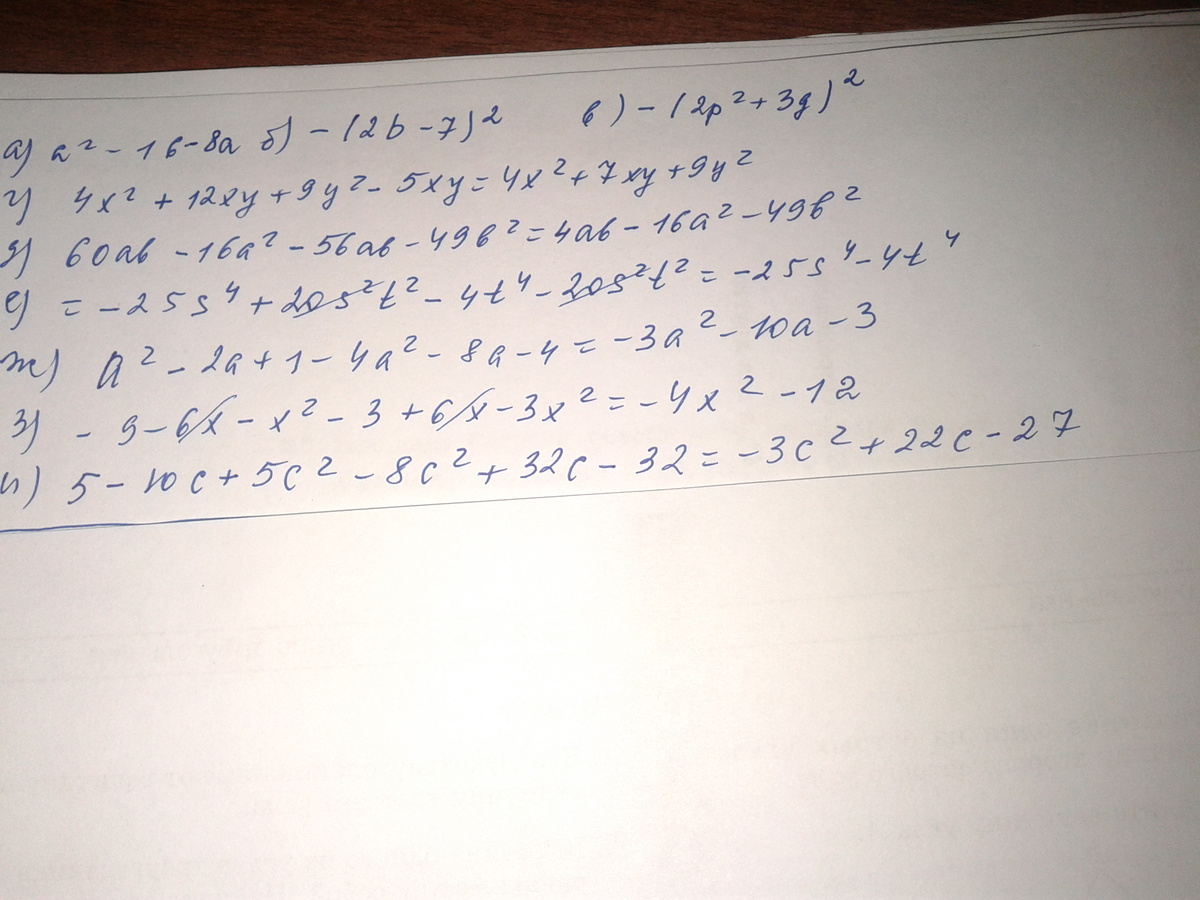 а) a² - 16 - 8a б) - (2b - 7)² в) - (2p² + 3q)²
г) 4x² + 12xy + 9y² - 5xy = 4x² + 7xy + 9y²
д) 60ab - 16a² - 56ab - 49b² = 4ab - 16a² - 49b²
е) = - 25s⁴ + 20s²t² - 4t⁴ - 20s²t² = - 25s⁴ - 4t⁴
ж) a² - 2a + 1 - 4a² - 8a - 4 = - 3a² - 10a - 3
з) - 9 - 6x - x² - 3 + 6x - 3x² = - 4x² - 12
и) 5 - 10c + 5c² - 8c² + 32c - 32 = - 3c² + 22c - 27